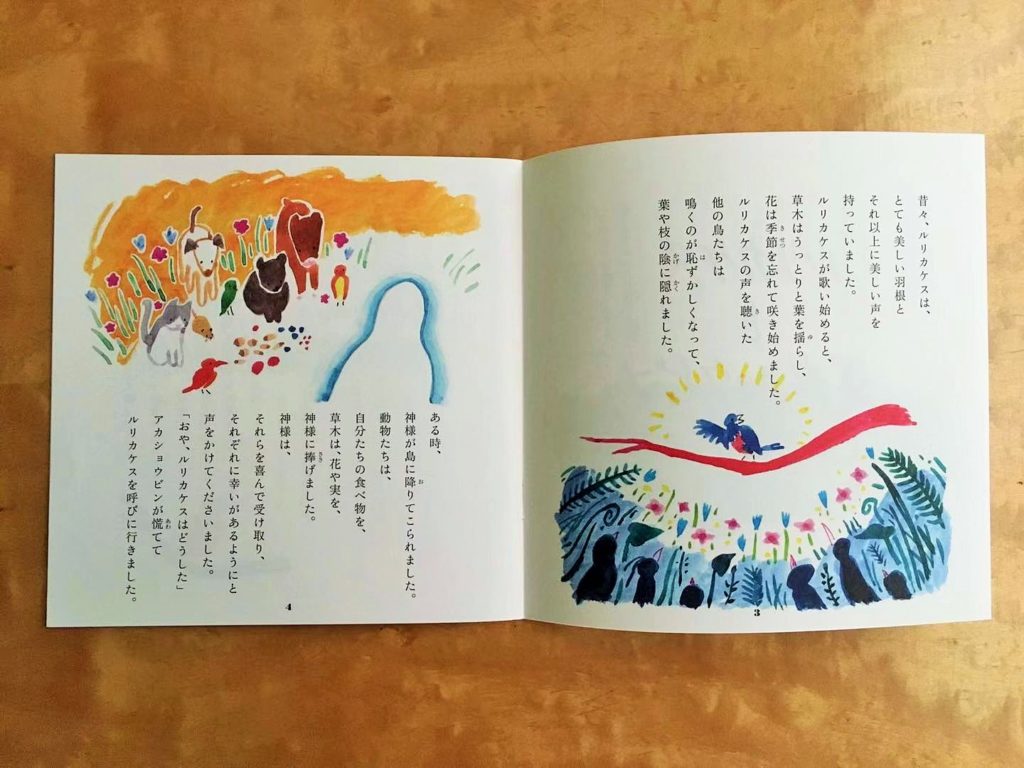 昔々、ルリカケスは、
とても美しい羽根と
それ以上に美しい声を
持っていました。
ルリカケスが歌い始めると、
草木はうっとりと葉を揺らし、
花は季節を忘れて咲き始めました。
ルリカケスの声を聴いた
他の鳥たちは
鳴くのが恥ずかしくなって、
葉や枝の陰に隠れました。
3
ある時、
神様が島に降りてこられました。
動物たちは、
自分たちの食べ物を、
草木は、花や実を、
神様に捧げました。
神様は、
それらを喜んで受け取り、
それぞれに幸いがあるようにと
声をかけてくださいました。
「おや、ルリカケスはどうした」
アカショウビンが慌てて
ルリカケスを呼びに行きました。
4